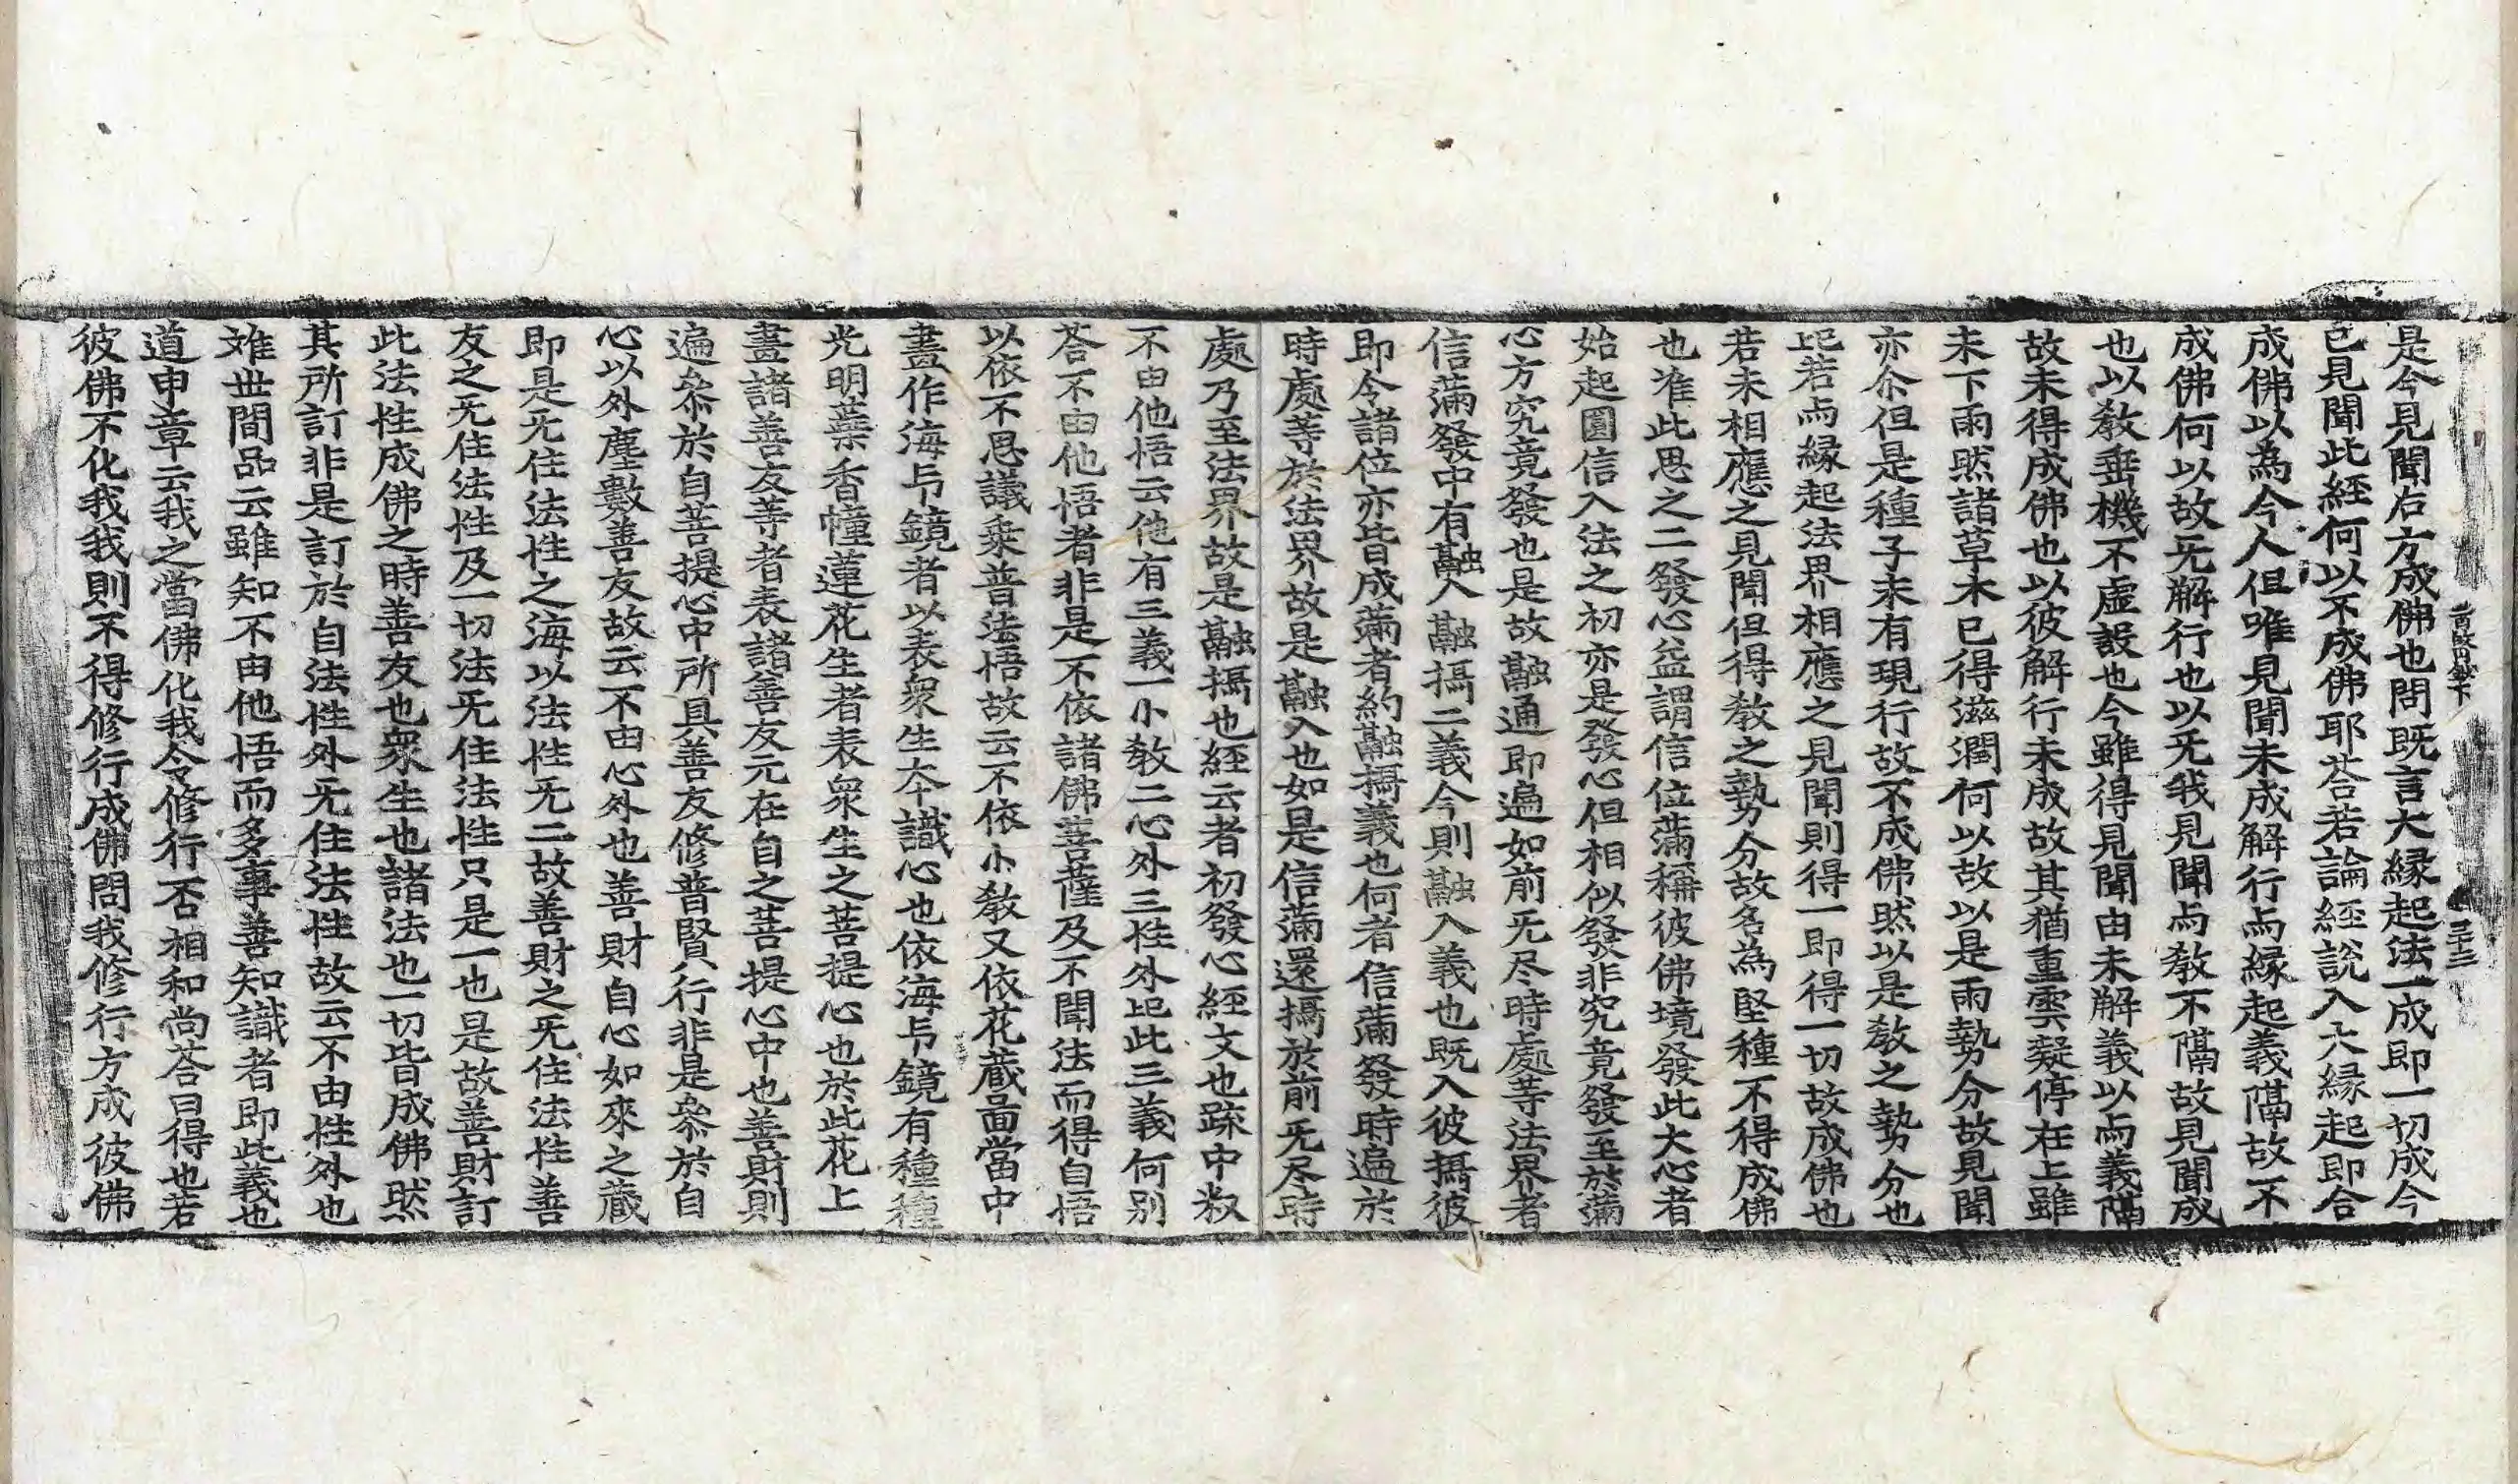 是今見聞右方成佛也問既言大縁起法一成即一切成今
已見聞此経何以不成佛耶荅若論経說入大縁起即合
成佛以為今人但唯見聞未成解行与縁起義隔故不
成佛何以故无解行也以无我見聞与教不隔故見聞成
也以教垂機不虛設也今雖得見聞由未解義以而義隔
故未得成佛也以彼解行未成故其猶重雲凝停在上雖
未下雨然諸草木已得滋潤何以故以是雨勢分故見聞
亦尒但是種子未有現行故不成佛然以是教之勢分也
比若与縁起法界相應之見聞則得一即得一切故成佛也
若未相應之見聞但得教之勢分故名為堅種不得成佛
也准此思之二發心益謂信位滿稱彼佛境發此大心者
始起圓信入法之初亦是發心但相似發非究竟發至於滿
心方究竟發也是故融通即遍如前无尽時處等法界者
信滿發中有融入融攝二義今則融入義也既入彼攝彼
即令諸位亦皆成滿者約融攝義也何者信滿發時遍於
時處等於法界故是融入也如是信滿還攝於前无尽時
處乃至法界故是融攝也経云者初發心経文也疎中叙
不由他悟云他有三義一小教二心外三性外比此三義何別
荅不由他悟者非是不依諸佛菩薩及不聞法而得自悟
以依不思議乘普法悟故云不依小教又依花蔵品當中
盡作海与鏡者以表衆生夲識心也依海与鏡有種種
光明蘂香幢蓮花生者表衆生之菩提心也於此花上
盡諸善友等者表諸善友元在自之菩提心中也善財則
遍叅於自菩提心中所具善友修普賢行非是叅於自
心以外塵數善友故云不由心外也善財自心如來之蔵
即是无住法性之海以法性无二故善財之无住法性善
友之无住法性及一切法无住法性只是一也是故善財訂
此法性成佛之時善友也衆生也諸法也一切皆成佛然
其所訂非是訂於自法性外无住法性故云不由性外也
难世間品云雖知不由他悟而多事善知識者即此義也
道申章云我之當佛化我令修行否相和尚荅曰得也若
彼佛不化我我則不得修行成佛問我修行方成彼佛